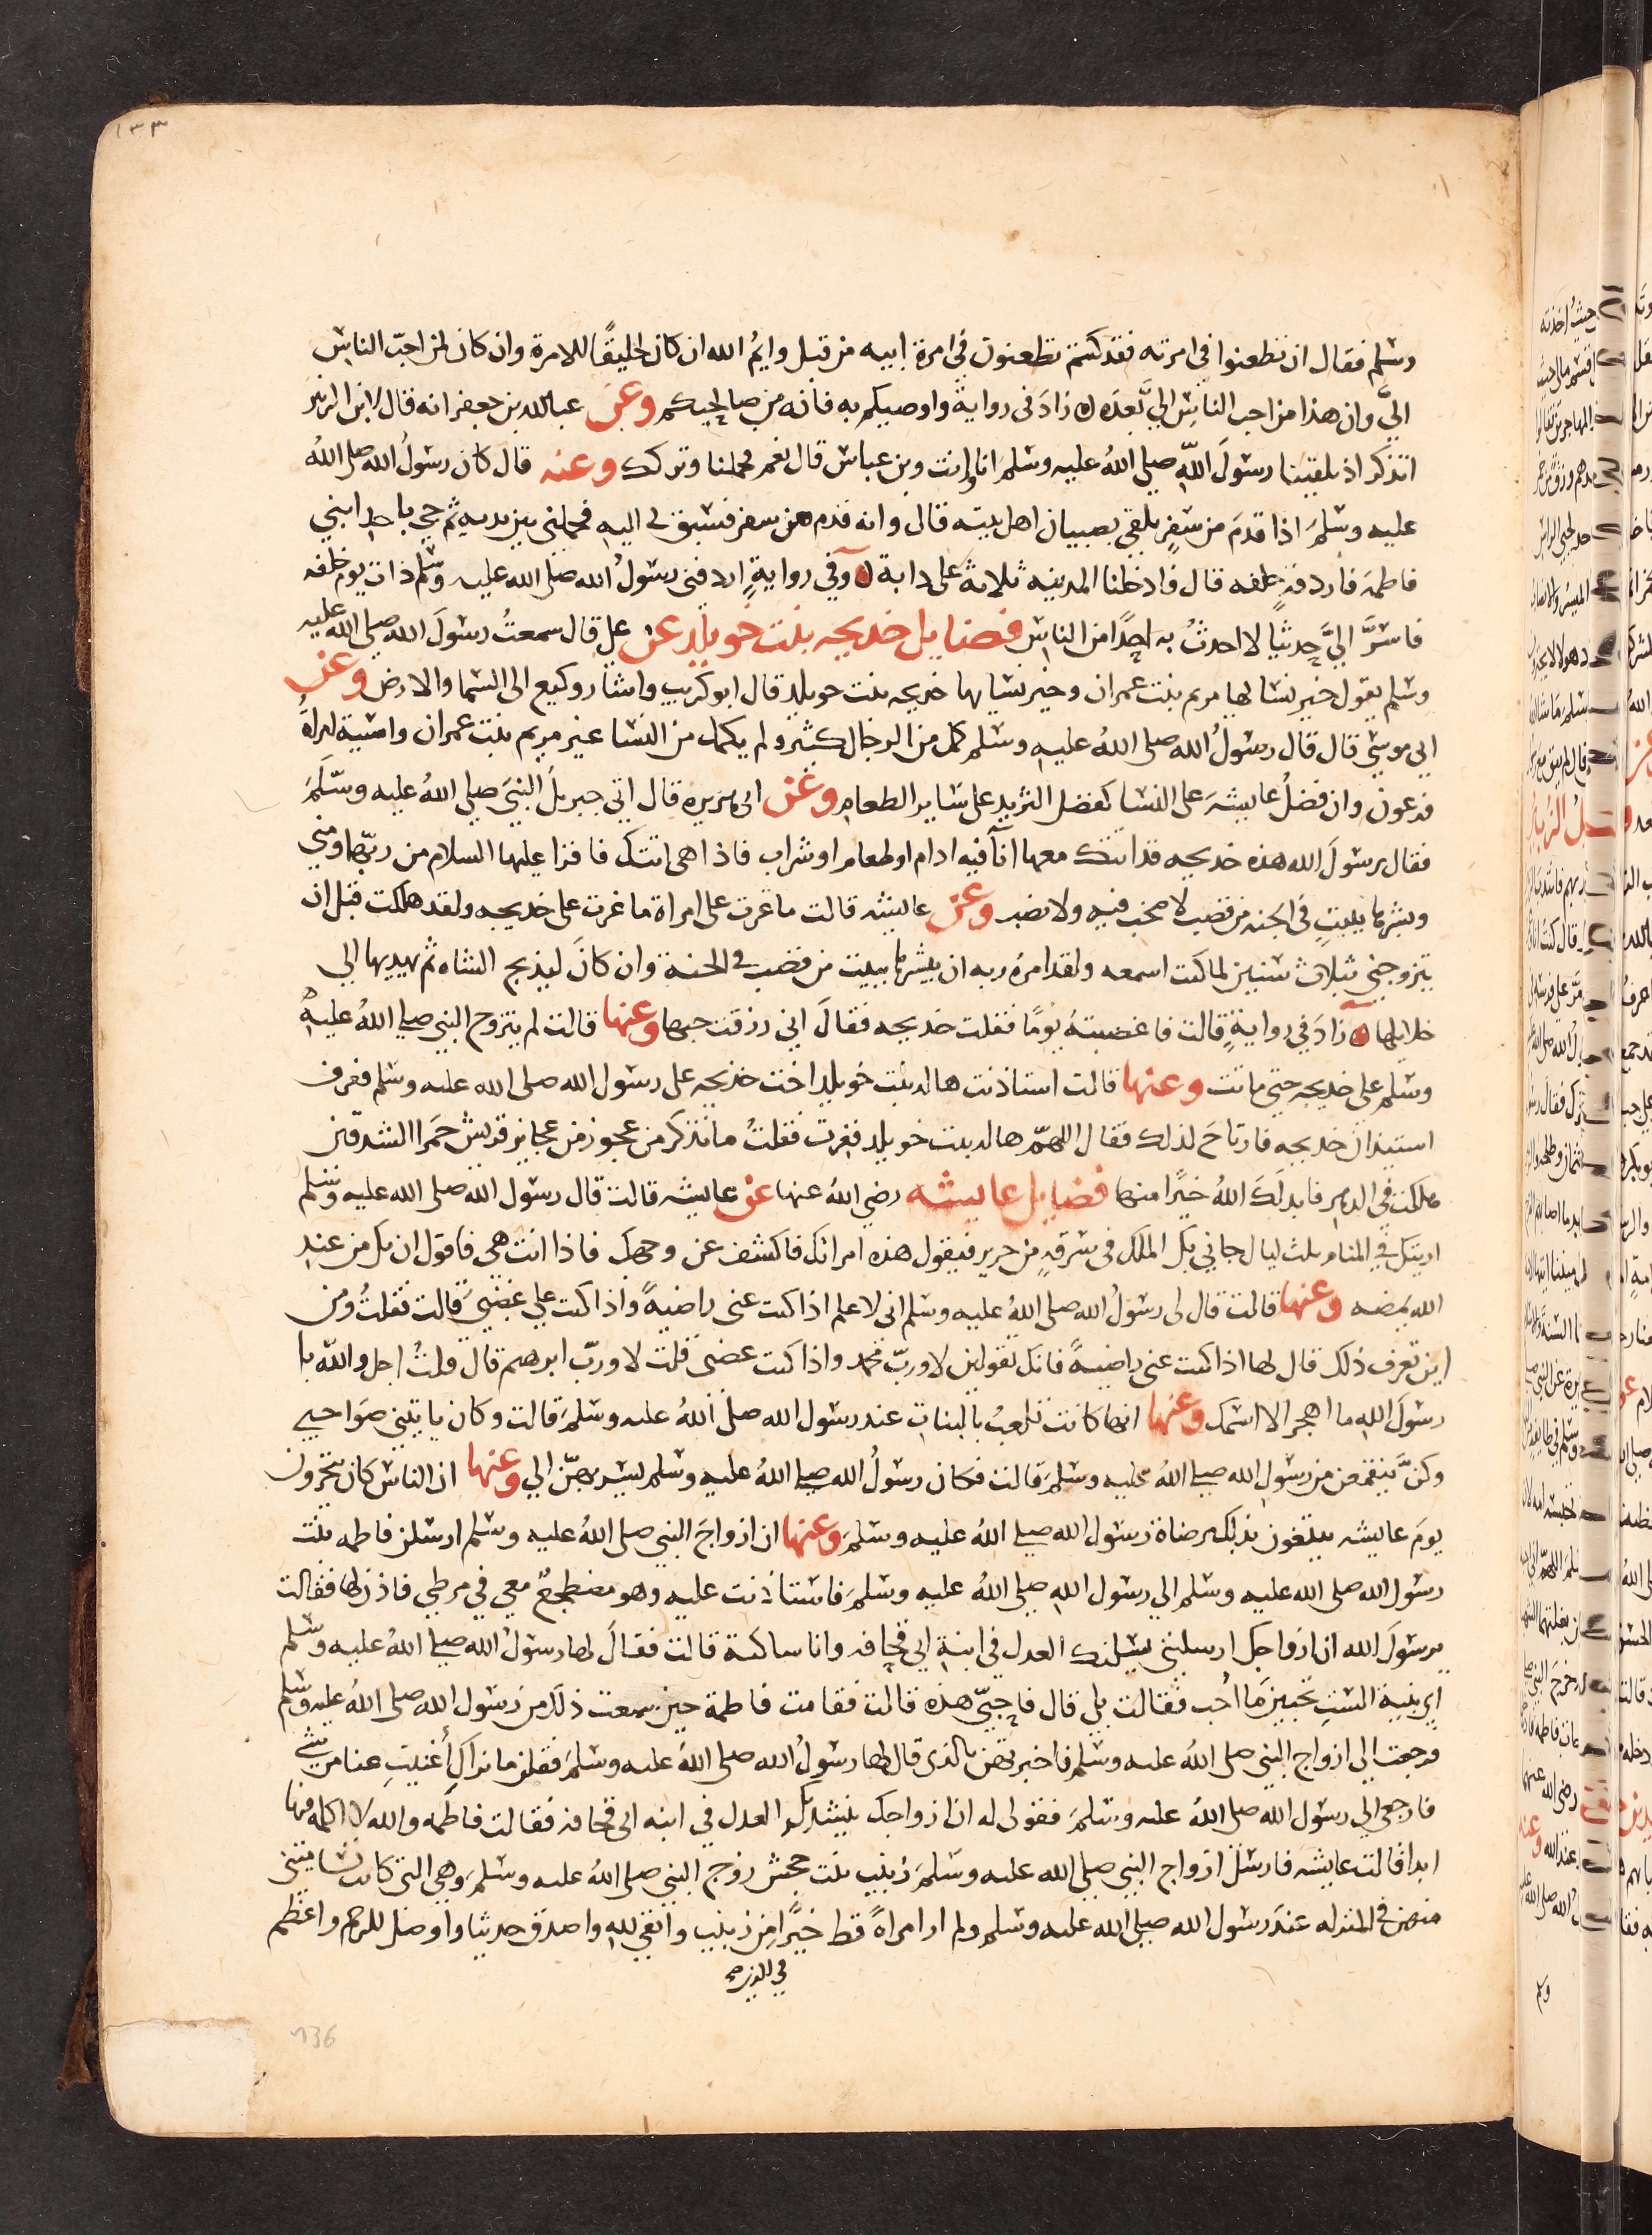 ١٣٣
وسلم فقال ان تطعنوا في امرته فقد كنتم تطعنون في امرة ابيه من قبل وايمُ الله ان كان لخليقًا للامرة وان كان لمن احبّ الناس
اليَّ وان هذا من احب الناس اليَّ بعدَه زادَ في رواية واوصيكم به فانه من صالحيكم وعن عبد الله بن جعفر انه قال لابن الزبير
اتذكر اذ تلقينا رسولَ اللهِ صلى اللهُ عليه وسلمَ انا وانت وبن عباس قال نعم فحملنا وتركك وعنه قال كان رسولُ الله صلى اللهُ
عليه وسلمَ اذا قدمَ من سفرٍ تلقي بصبيان اهل بيته قال وانه قدم من سفر فسبق بى اليه فحملنى بين يديه ثم جي باحد ابنيْ
فاطمة فأردفه خلفه قال فادخلنا المدينه ثلاثة على دابة وفى روايةٍ اردفنى رسولُ الله صلى الله عليه وسلم ذات يوم خلفه
فاسرَّ اليَّ حديثًا لا احدثُ به احدًا من الناس فضايل خديجه بنت خويلد عن على قال سمعتُ رسولَ الله صلى الله عليه
وسلم يقول خير نسايها مريم بنت عمران وخير نسايها خديجه بنت خويلد قال ابو كريب واشار وكيع الى السما والارض وعن
ابى موسى قال قال رسولُ الله صلى اللهُ عليه وسلم كمل من الرجال كثير ولم يكمل من النسا غير مريم بنت عمران واسية امراةُ
فرعون وان فضلُ عايشهَ على النسا كفضل الثريد على ساير الطعام وعن ابى هريره قال اتي جبريلُ النبيَ صلى اللهُ عليه وسلّمَ
فقال يرسولَ الله هذه خديجه قد اتتك معها اناً فيه ادام او طعام او شراب فاذا هى اتتك فاقرا عليها السلام من ربّها ومني
وبشرها ببيتٍ فى الجنه من قصب لا صخب فيه ولا نصب وعن عايشه قالت ما غرت على امراة ما غرت على خديجه ولقد هلكت قبل ان
يتزوجني بثلاث سنين لما كنت اسمعه ولقد امرَه ربه ان يبشرها ببيت من قصب فى الجنة وان كانَ ليذبح الشاه ثم يهديها الى
خلايلها زادَ في روايةٍ قالت فاغضبتهُ يومًا فقلت خديجه فقالَ اني رزقت حبها وعنها قالت لم يتزوج النبي صلى اللهُ عليه
وسلم على خديجه حتى ماتت وعنها قالت استاذنت هاله بنت خويلد اخت خديجه على رسول الله صلى الله عليه وسلم فعرف
استيذانَ خديجه فارتاحَ لذلك فقال اللهمّ هاله بنت خويلد فغرت فقلتُ ما تذكر من عجوز من عجايز قريش حمرا الشدقين
هلكت في الدهر فابدلَكَ اللهُ خيرًا منها فضايل عايشه رضي اللهُ عنها عن عايشه قالت قال رسول الله صلى الله عليه وسلم
اريتك في المنام ثلث ليال جاني بكِ الملك فى سرقةٍ من حرير فيقول هذه امراتك فاكشف عن وجهك فاذا انت هى فاقول ان يك من عند
الله يمضه وعنها قالت قال لى رسولُ الله صلى اللهُ عليه وسلم انى لاعلم اذا كنت عنى راضيةً واذا كنت على غضبَي قالت فقلتُ ومن
اين تعرف ذلك قال لها اذا كنت عنى راضيةً فانك تقولين لا وربّ محمد واذا كنت غضبى قلت لا وربّ ابرهيم قال قلتُ اجل والله يا
رسولَ اللهِ ما اهجر الا اسمك وعنها انها كانت تلعبُ بالبنات عند رسول الله صلى اللهُ عليه وسلمَ قالت وكان ياتيني صَواحبي
وكنَّ ينقمعن من رسولِ الله صلى اللهُ عليه وسلمَ قالت فكان رسولُ الله صلى اللهُ عليه وسلم يسربهنّ الي وعنها ان الناس كان يتحرون
يومَ عايشه يبتغون بذلك مرضاة رسول الله صلى اللهُ عليه وسلمَ وعنها ان ازواجَ النبي صلى اللهُ عليه وسلم ارسلن فاطمه بنت
رسول الله صلى الله عليه وسلم الي رسول اللهِ صلى اللهُ عليه وسلمَ فاستاذنت عليه وهو مضطجعٌ معي في مرطي فاذن لها فقالت
يرسولَ الله ان ازواجك ارسلننى يسلنك العدل في ابنةِ ابي قحافه وانا ساكتة قالت فقالَ لها رسولُ الله صلى اللهُ عليه وسلم
اي بنية الستِ تحبينَ ما احُب فقالت بلى قال فاحبّي هذه قالت فقامت فاطمة حين سمعت ذلك من رسول الله صلى اللهُ عليه وسلم
فرجعت الى ازواج النبي صلى اللهُ عليه وسلم فاخبرتهن بالذى قال لها رسولُ الله صلى اللهُ عليه وسلمَ فقلن ما نراكِ أغنيتِ عنا من شي
فارجعى الي رسول الله صلى اللهُ عليه وسلمَ فقولى له ان ازواجك ينشدنك العدل في ابنه ابى قحافه فقالت فاطمه والله لا اكلمه فيها
ابدا قالت عايشه فارسل ازواج النبي صلى الله عليه وسلمَ زينب بنت جحش زوج النبي صلى اللهُ عليه وسلمَ وهي التي كانت تسامينى
منهن فى المنزله عندَ رسول الله صلى الله عليه وسلم ولم ار امراةً قط خيرًا من زينب واتقى للهِ واصدق حديثا واوصل للرحم واعظم
في الدين صح
136